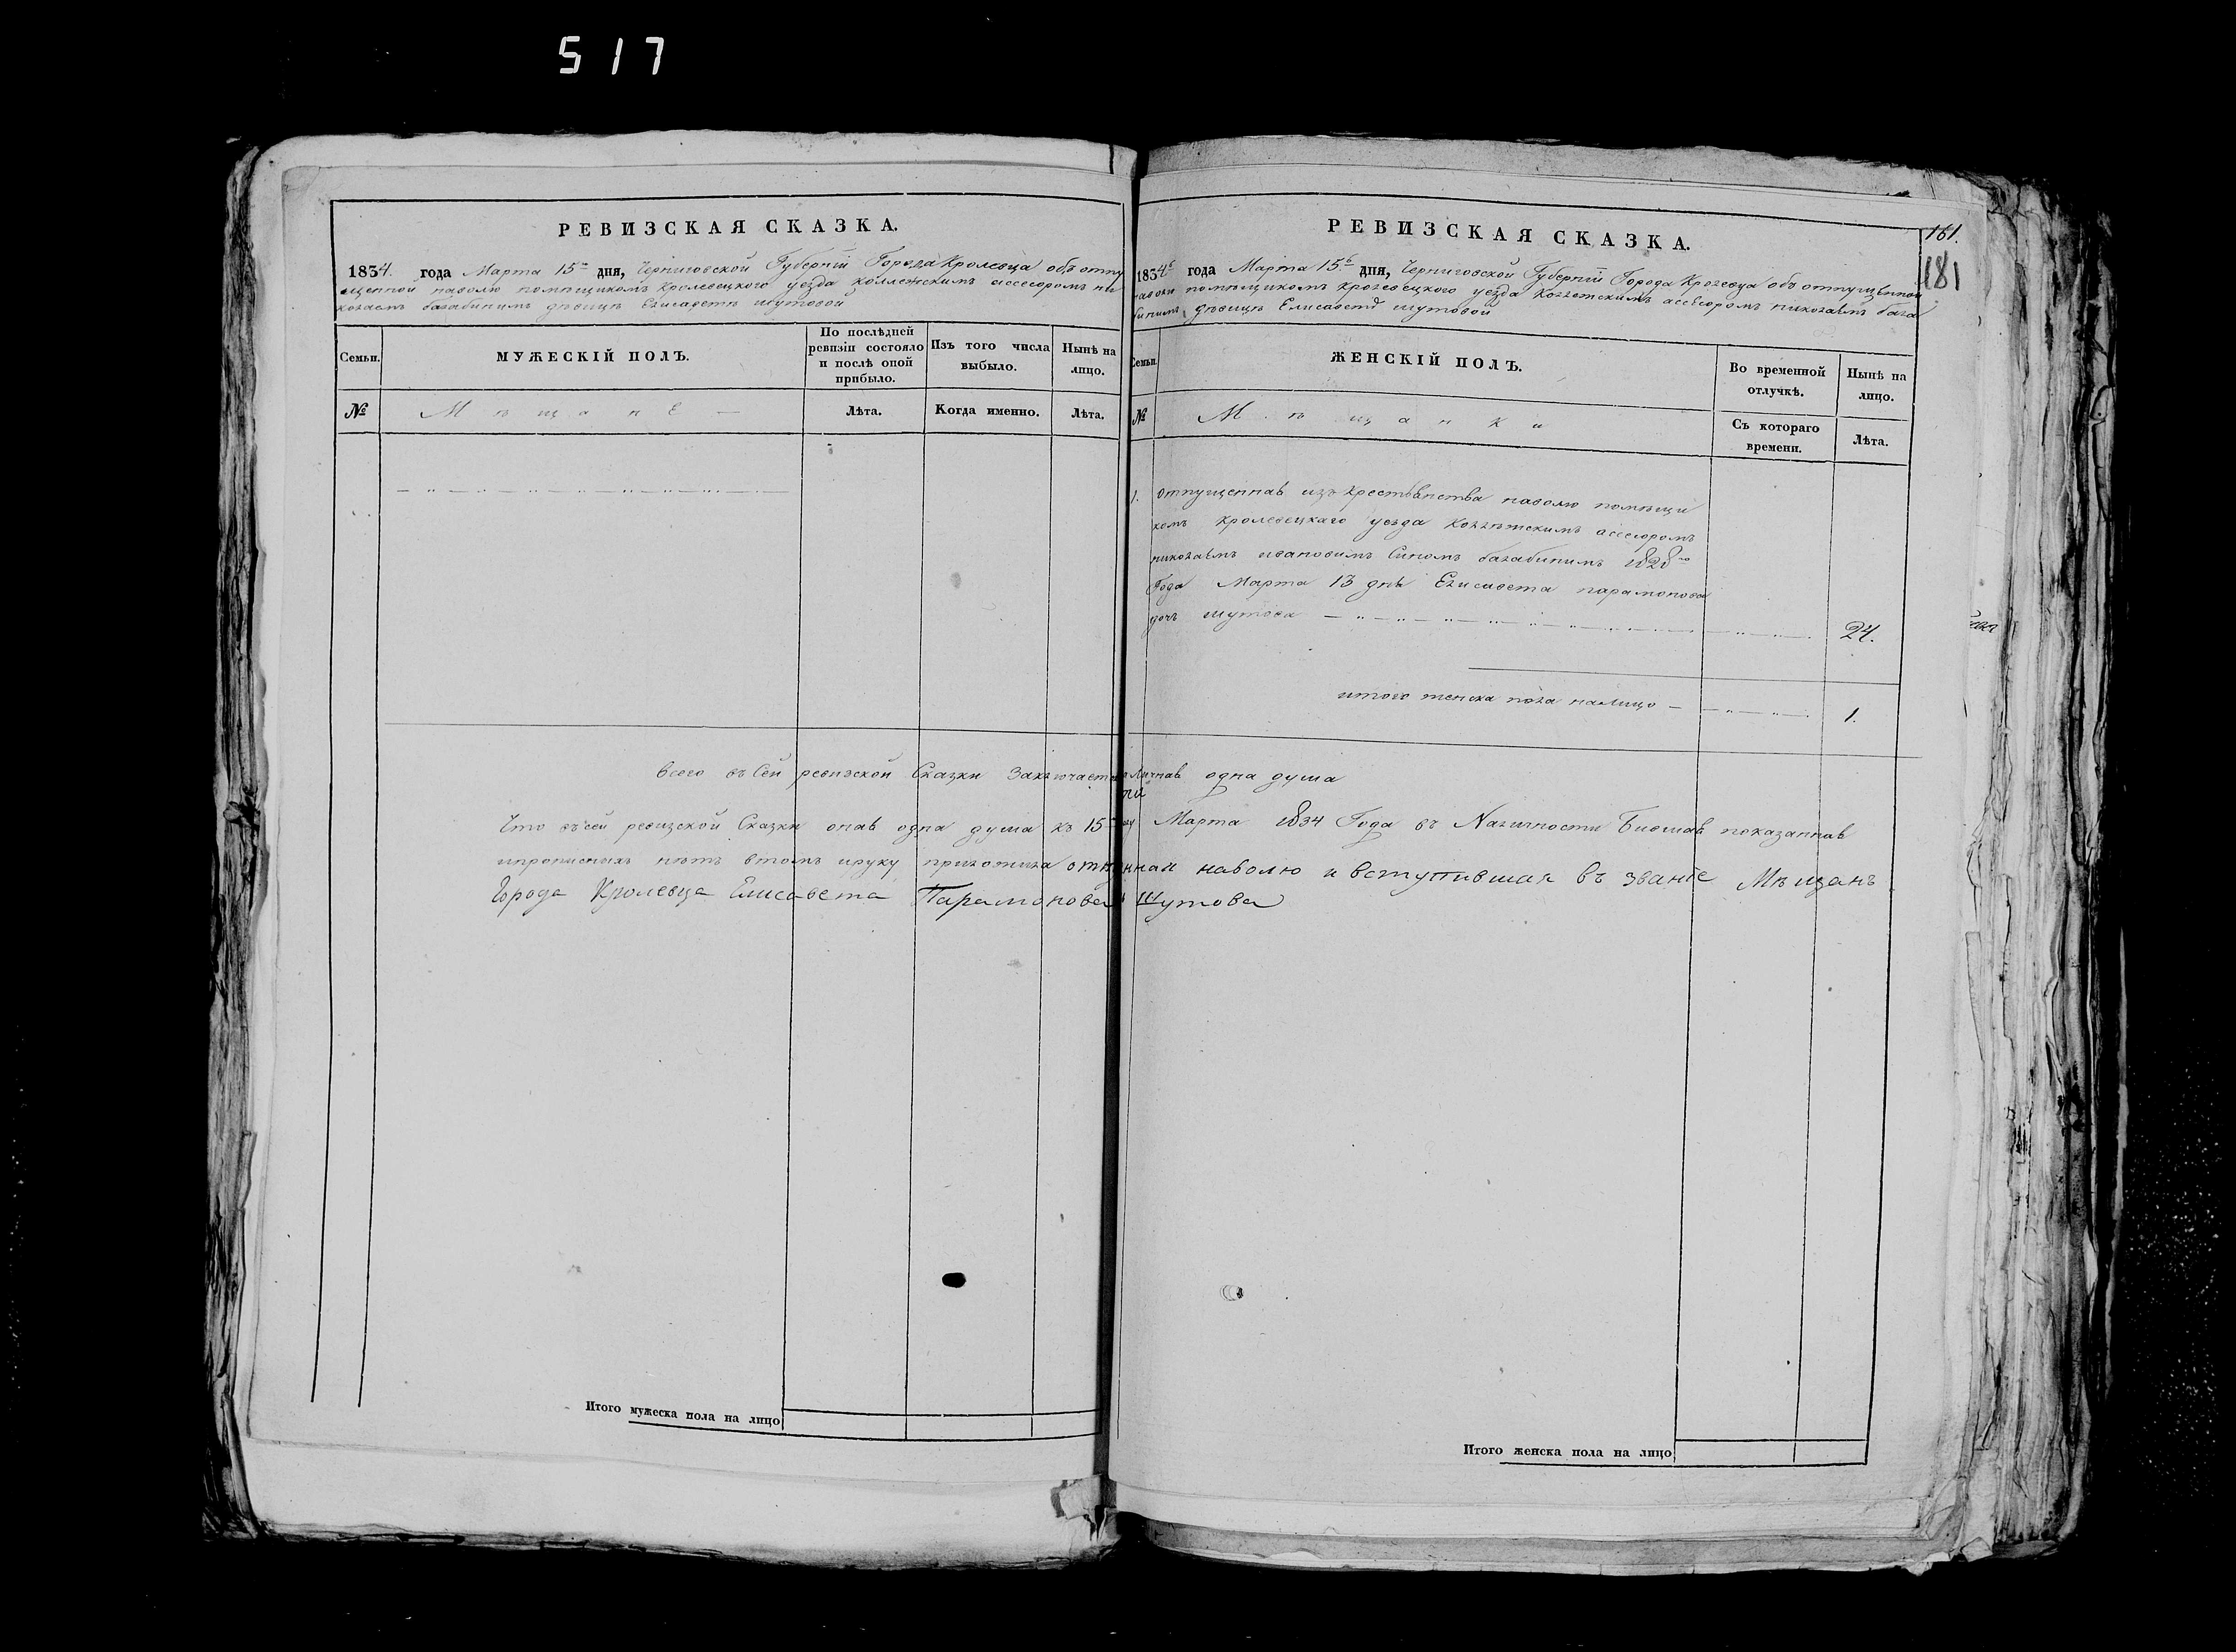 517
РЕВИЗСКАЯ СКАЗКА.
1834. года Марта 15 дня, Черниговской Губерніи Города Кролевца объ отпу
щенной наволю помѣщикомъ кролевецкого уезда коллежскимъ ассесоромъ ни
колаемъ балабинимъ дѣвицѣ Елисаветѣ шутовой
Семьи.
МУЖЕСКІЙ ПОЛЪ.
По послѣдней ревизіи состояло и послѣ оной прибыло.
Изъ того числа выбыло.
Нынѣ на лицо.
№
Мѣщанe
Лѣта.
Когда именно.
Лѣта.
Итого мужеска пола на лицо
РЕВИЗСКАЯ СКАЗКА.
181.
181
1834 года Марта 15 дня, Черниговской Губерніи Города Кролевца объ отпущенной
наволю помѣщикомъ кролевецкого уезда колежскимъ ассесоромъ николаемъ бала
бинимъ дѣвицѣ Елисаветѣ шутовой
Семьи.
ЖЕНСКІЙ ПОЛЪ.
Во временной отлучкѣ.
Нынѣ на лицо.
№
Мѣщанки
Съ котораго времени.
Лѣта.
1. отпущенная изъ крестьянства наволю помѣщи
комъ кролевецкаго уезда колѣжскимъ ассесоромъ
николаемъ ивановимъ Синомъ балабинимъ 1828го
Года Марта 13 дня Елисавета парамонова
дочь шутова 24.
итого женска пола налицо 1.
Всего въ Сей ревизской Сказки Заключается личная одна душа
Что въ сей ревизской Сказки оная одна душа къ 15 му Марта 1834 Года въ Наличности Бившая показанная
ипрописныхъ нѣтъ втомъ ируку приложила отпущенная наволю и вступившая въ званіе Мѣщанъ
Города Кролевца Елисавета Парамонова Шутова
Итого женска пола на лицо